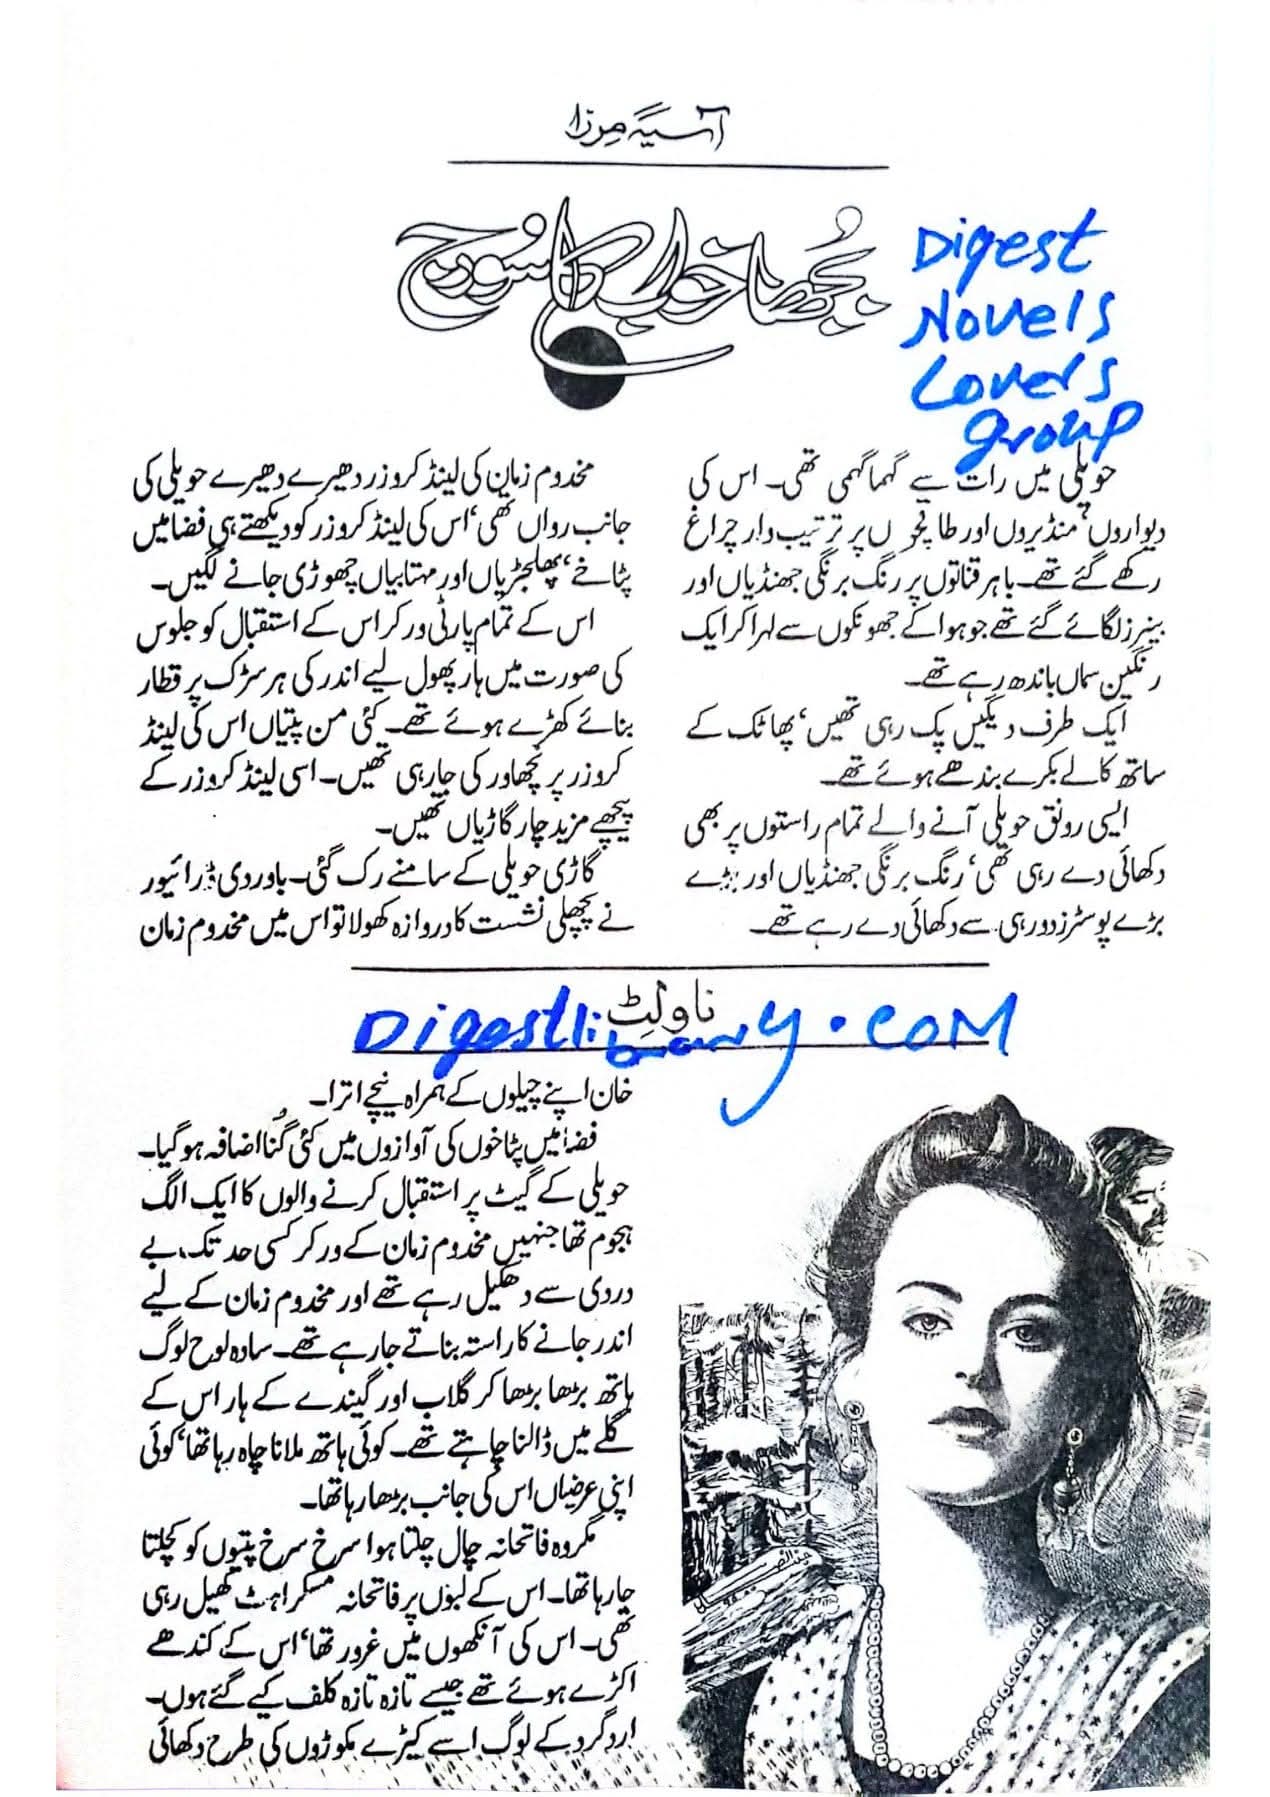 آسیہ مرزا
بجھا خواب کا سورج
Digest
Novels
Lovers
group
حویلی میں رات سے گہما گہمی تھی۔ اس کی
دیواروں، منڈیروں اور طاقچوں پر ترتیب وار چراغ
رکھے گئے تھے۔ باہر قناتوں پر رنگ برنگی جھنڈیاں اور
بینرز لگائے گئے تھے جو ہوا کے جھونکوں سے لہرا کر ایک
رنگین سماں باندھ رہے تھے۔
ایک طرف دیگیں پک رہی تھیں، پھاٹک کے
ساتھ کالے بکرے بندھے ہوئے تھے۔
ایسی رونق حویلی آنے والے تمام راستوں پر بھی
دکھائی دے رہی تھی، رنگ برنگی جھنڈیاں اور بڑے
بڑے پوسٹرز دور ہی سے دکھائی دے رہے تھے۔
مخدوم زمان کی لینڈ کروزر دھیرے دھیرے حویلی کی
جانب رواں تھی، اس کی لینڈ کروزر کو دیکھتے ہی فضا میں
پٹاخے، پھلجڑیاں اور مہتابیاں چھوڑی جانے لگیں۔
اس کے تمام پارٹی ورکر اس کے استقبال کو جلوس
کی صورت میں ہار پھول لیے اندر کی ہر سڑک پر قطار
بنائے کھڑے ہوئے تھے۔ کئی من پتیاں اس کی لینڈ
کروزر پر نچھاور کی جا رہی تھیں۔ اسی لینڈ کروزر کے
پیچھے مزید چار گاڑیاں تھیں۔
گاڑی حویلی کے سامنے رک گئی۔ باوردی ڈرائیور
نے پچھلی نشست کا دروازہ کھولا تو اس میں مخدوم زمان
ناولٹ
Digestlibrary.com
خان اپنے چیلوں کے ہمراہ نیچے اترا۔
فضا میں پٹاخوں کی آوازوں میں کئی گنُا اضافہ ہو گیا۔
حویلی کے گیٹ پر استقبال کرنے والوں کا ایک الگ
ہجوم تھا جنہیں مخدوم زمان کے ورکر کسی حد تک بے
دردی سے دھکیل رہے تھے اور مخدوم زمان کے لیے
اندر جانے کا راستہ بناتے جا رہے تھے۔ سادہ لوح لوگ
ہاتھ بڑھا بڑھا کر گلاب اور گیندے کے ہار اس کے
گلے میں ڈالنا چاہتے تھے۔ کوئی ہاتھ ملانا چاہ رہا تھا، کوئی
اپنی عرضیاں اس کی جانب بڑھا رہا تھا۔
مگر وہ فاتحانہ چال چلتا ہوا سرخ سرخ پتیوں کو کچلتا
جا رہا تھا۔ اس کے لبوں پر فاتحانہ مسکراہٹ کھیل رہی
تھی۔ اس کی آنکھوں میں غرور تھا، اس کے کندھے
اکڑے ہوئے تھے جیسے تازہ تازہ کلف کیے گئے ہوں۔
ارد گرد کے لوگ اسے کیڑے مکوڑوں کی طرح دکھائی